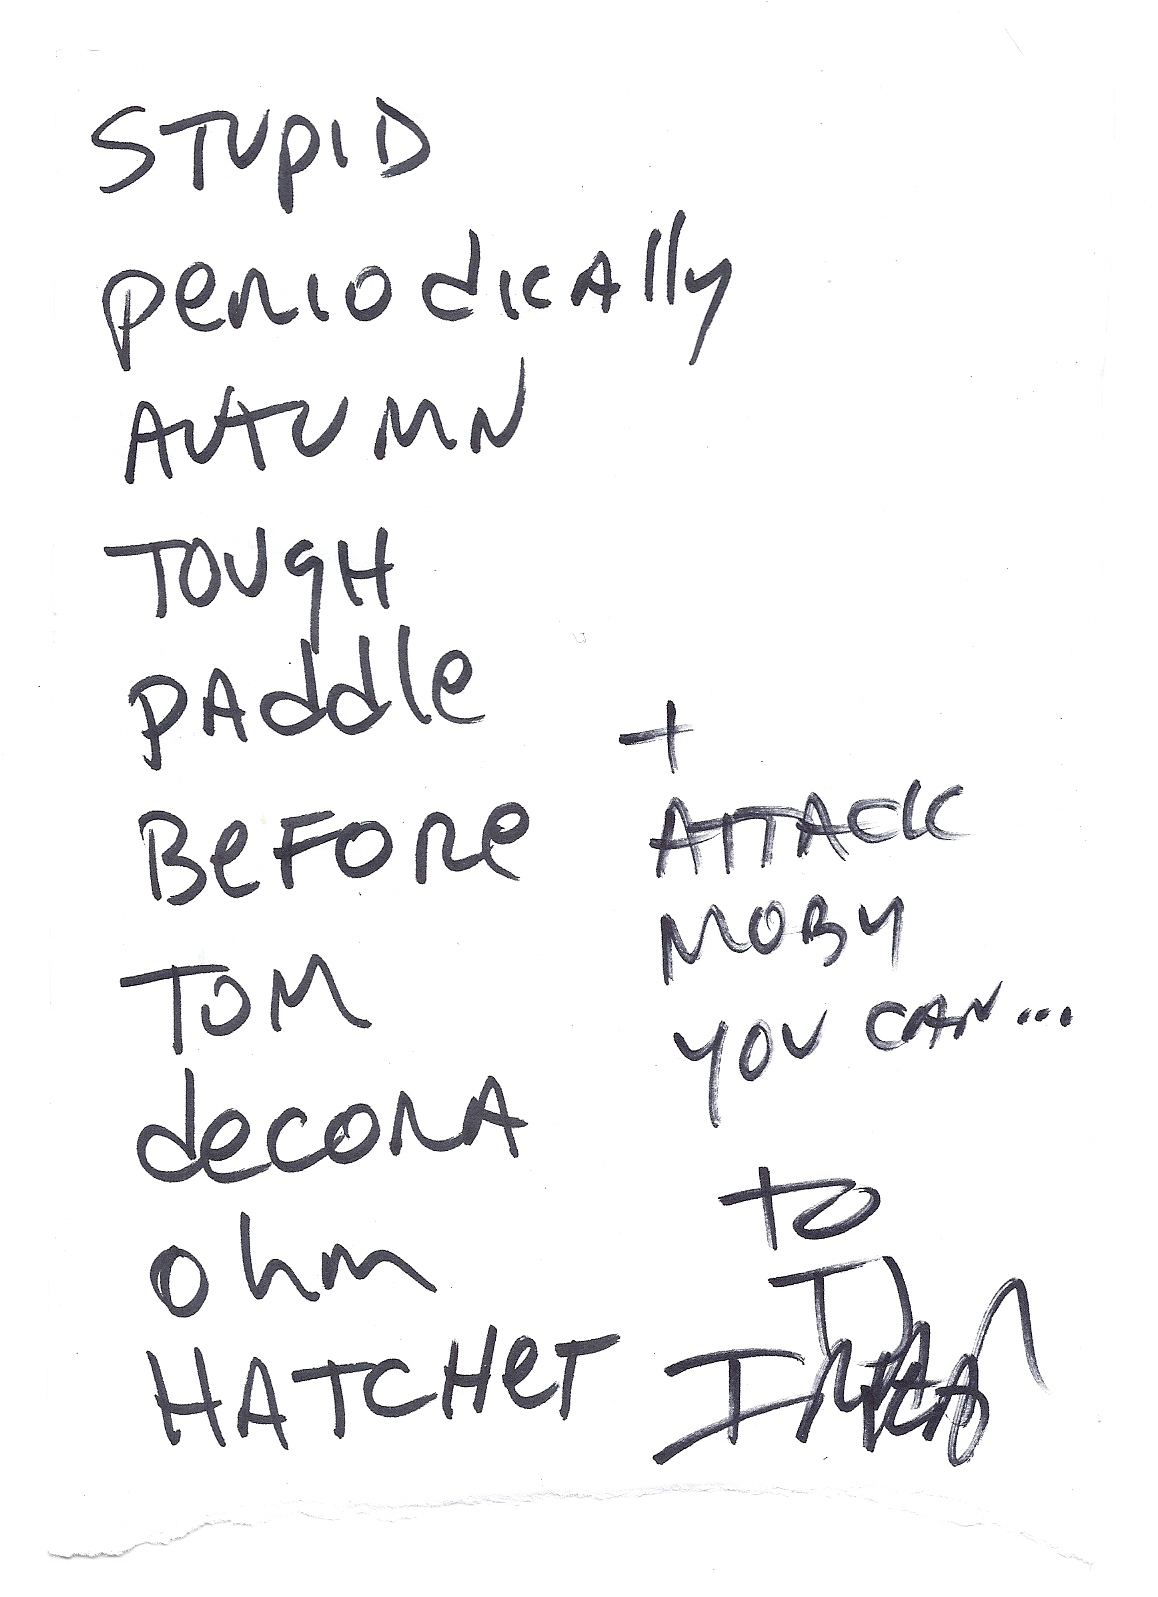 STUPID
periodically
AUTUMN
TOUGH
PAddle
BeFORe
TOM
decoRA
ohm
HATCHeT
+
ATTACK
MOBY
YOU CAN...
to